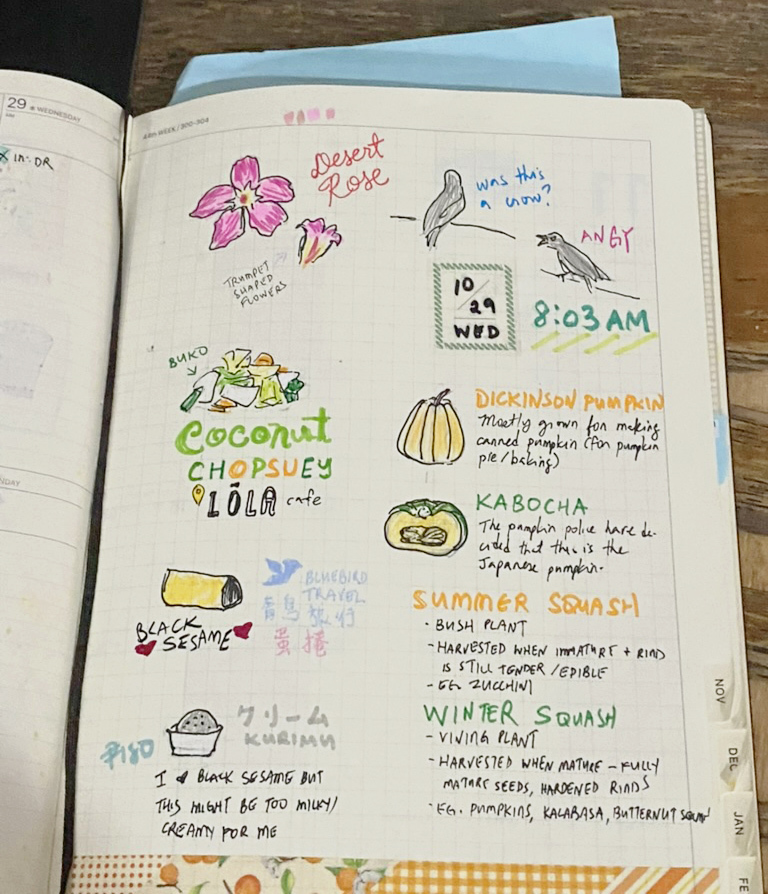 29 WEDNESDAY
AM
X in DR
44th WEEK / 300-304
Desert
Rose
TRUMPET
SHAPED
FLOWERS
was this
a crow?
ANGY
10/29
WED
8:03 AM
BUKO
Coconut
CHOPSUEY
LŌLA cafe
DICKINSON PUMPKIN
Mostly grown for making
canned pumpkin (for pumpkin
pie/baking)
KABOCHA
The pumpkin police have de-
cided that this is the
Japanese pumpkin.
BLACK
SESAME
BLUEBIRD
TRAVEL
青鳥旅行
蛋捲
SUMMER SQUASH
- BUSH PLANT
- HARVESTED WHEN IMMATURE + RIND
IS STILL TENDER/EDIBLE
- EG. ZUCCHINI
WINTER SQUASH
- VINING PLANT
- HARVESTED WHEN MATURE - FULLY
MATURE SEEDS, HARDENED RINDS
- EG. PUMPKINS, KALABASA, BUTTERNUT SQUASH
₱180
クリーム
KURIMU
I ♥ BLACK SESAME BUT
THIS MIGHT BE TOO MILKY/
CREAMY FOR ME
NOV
DEC
JAN
FE